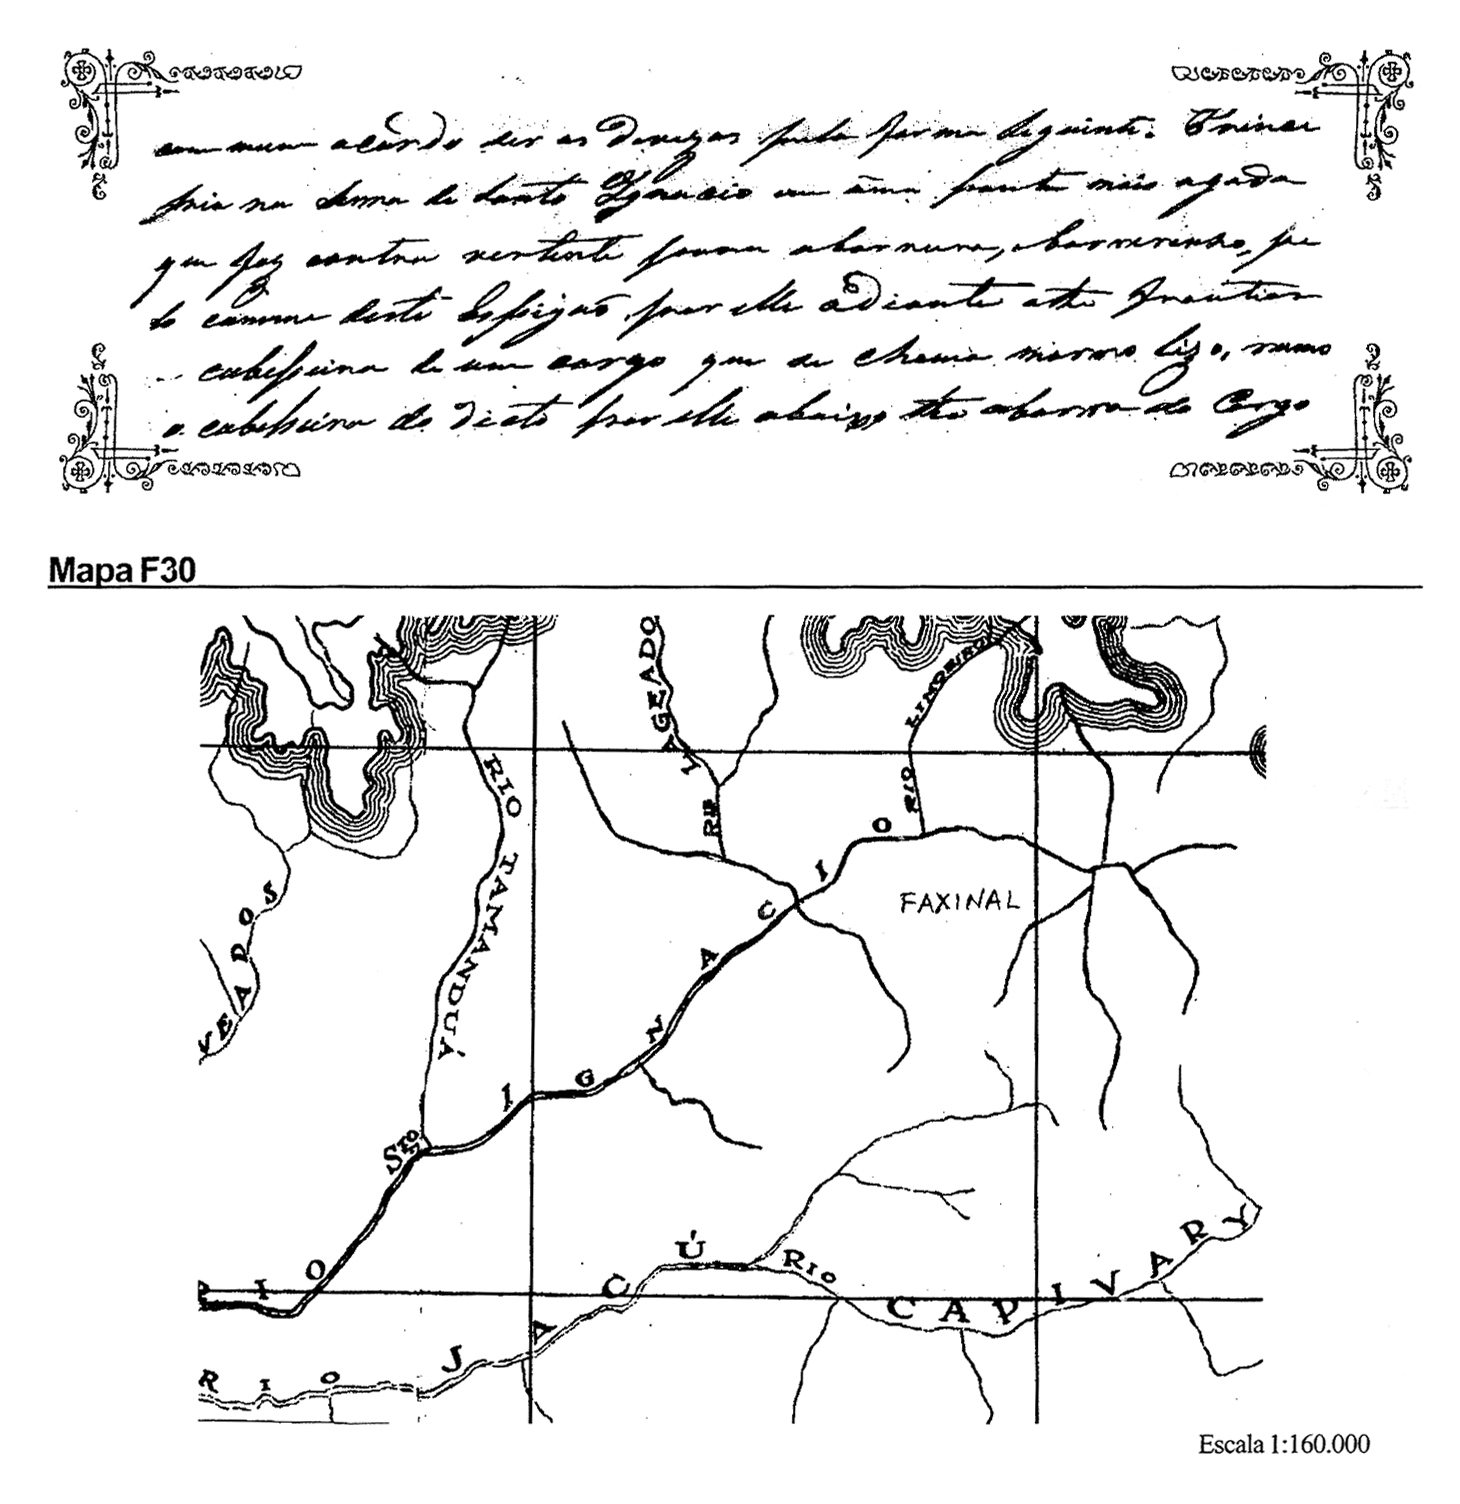 com mum acôrdo ser as devizas pela forma seguinte. Princi
pria na Serra de Santo Ignacio em uma ponte mais aguda
que faz contra vertente para abarrura, pe
lo cumme deste Espigão, por elle adiante athe frontiar
cabesseira de um corgo que se chama morro lizo, rumo
a cabesseira do dicto por elle abaixo athe abarra do Corgo
Mapa F30
LAGEADO
RIB
RIO LIMOEIRO
RIO TAMANDUÁ
VEADOS
FAXINAL
RIO STO IGNACIO
RIO JACÚ
RIO CAPIVARY
Escala 1:160.000